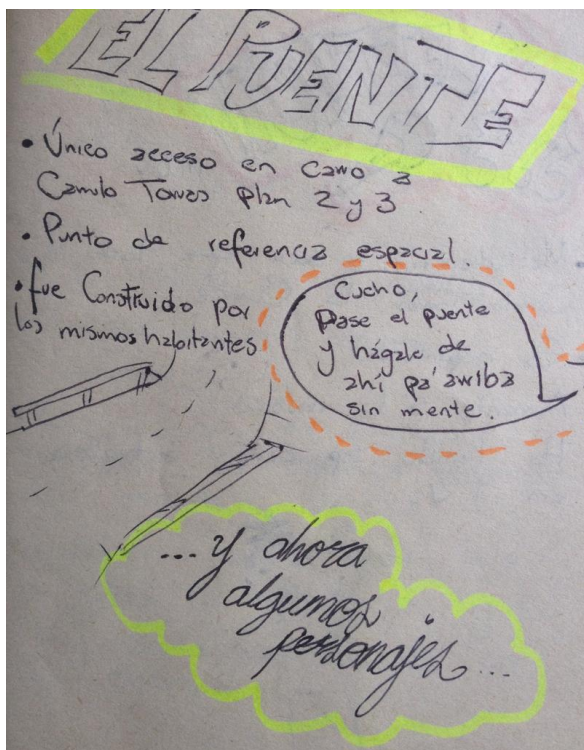 EL PUENTE
• Único acceso en carro a
Camilo Torres Plan 2 y 3
• Punto de referencia espacial.
• fue Construido por
los mismos habitantes
Cucho,
pase el puente
y hágale de
ahí pa' arriba
sin mente.
...y ahora
algunos
personajes...